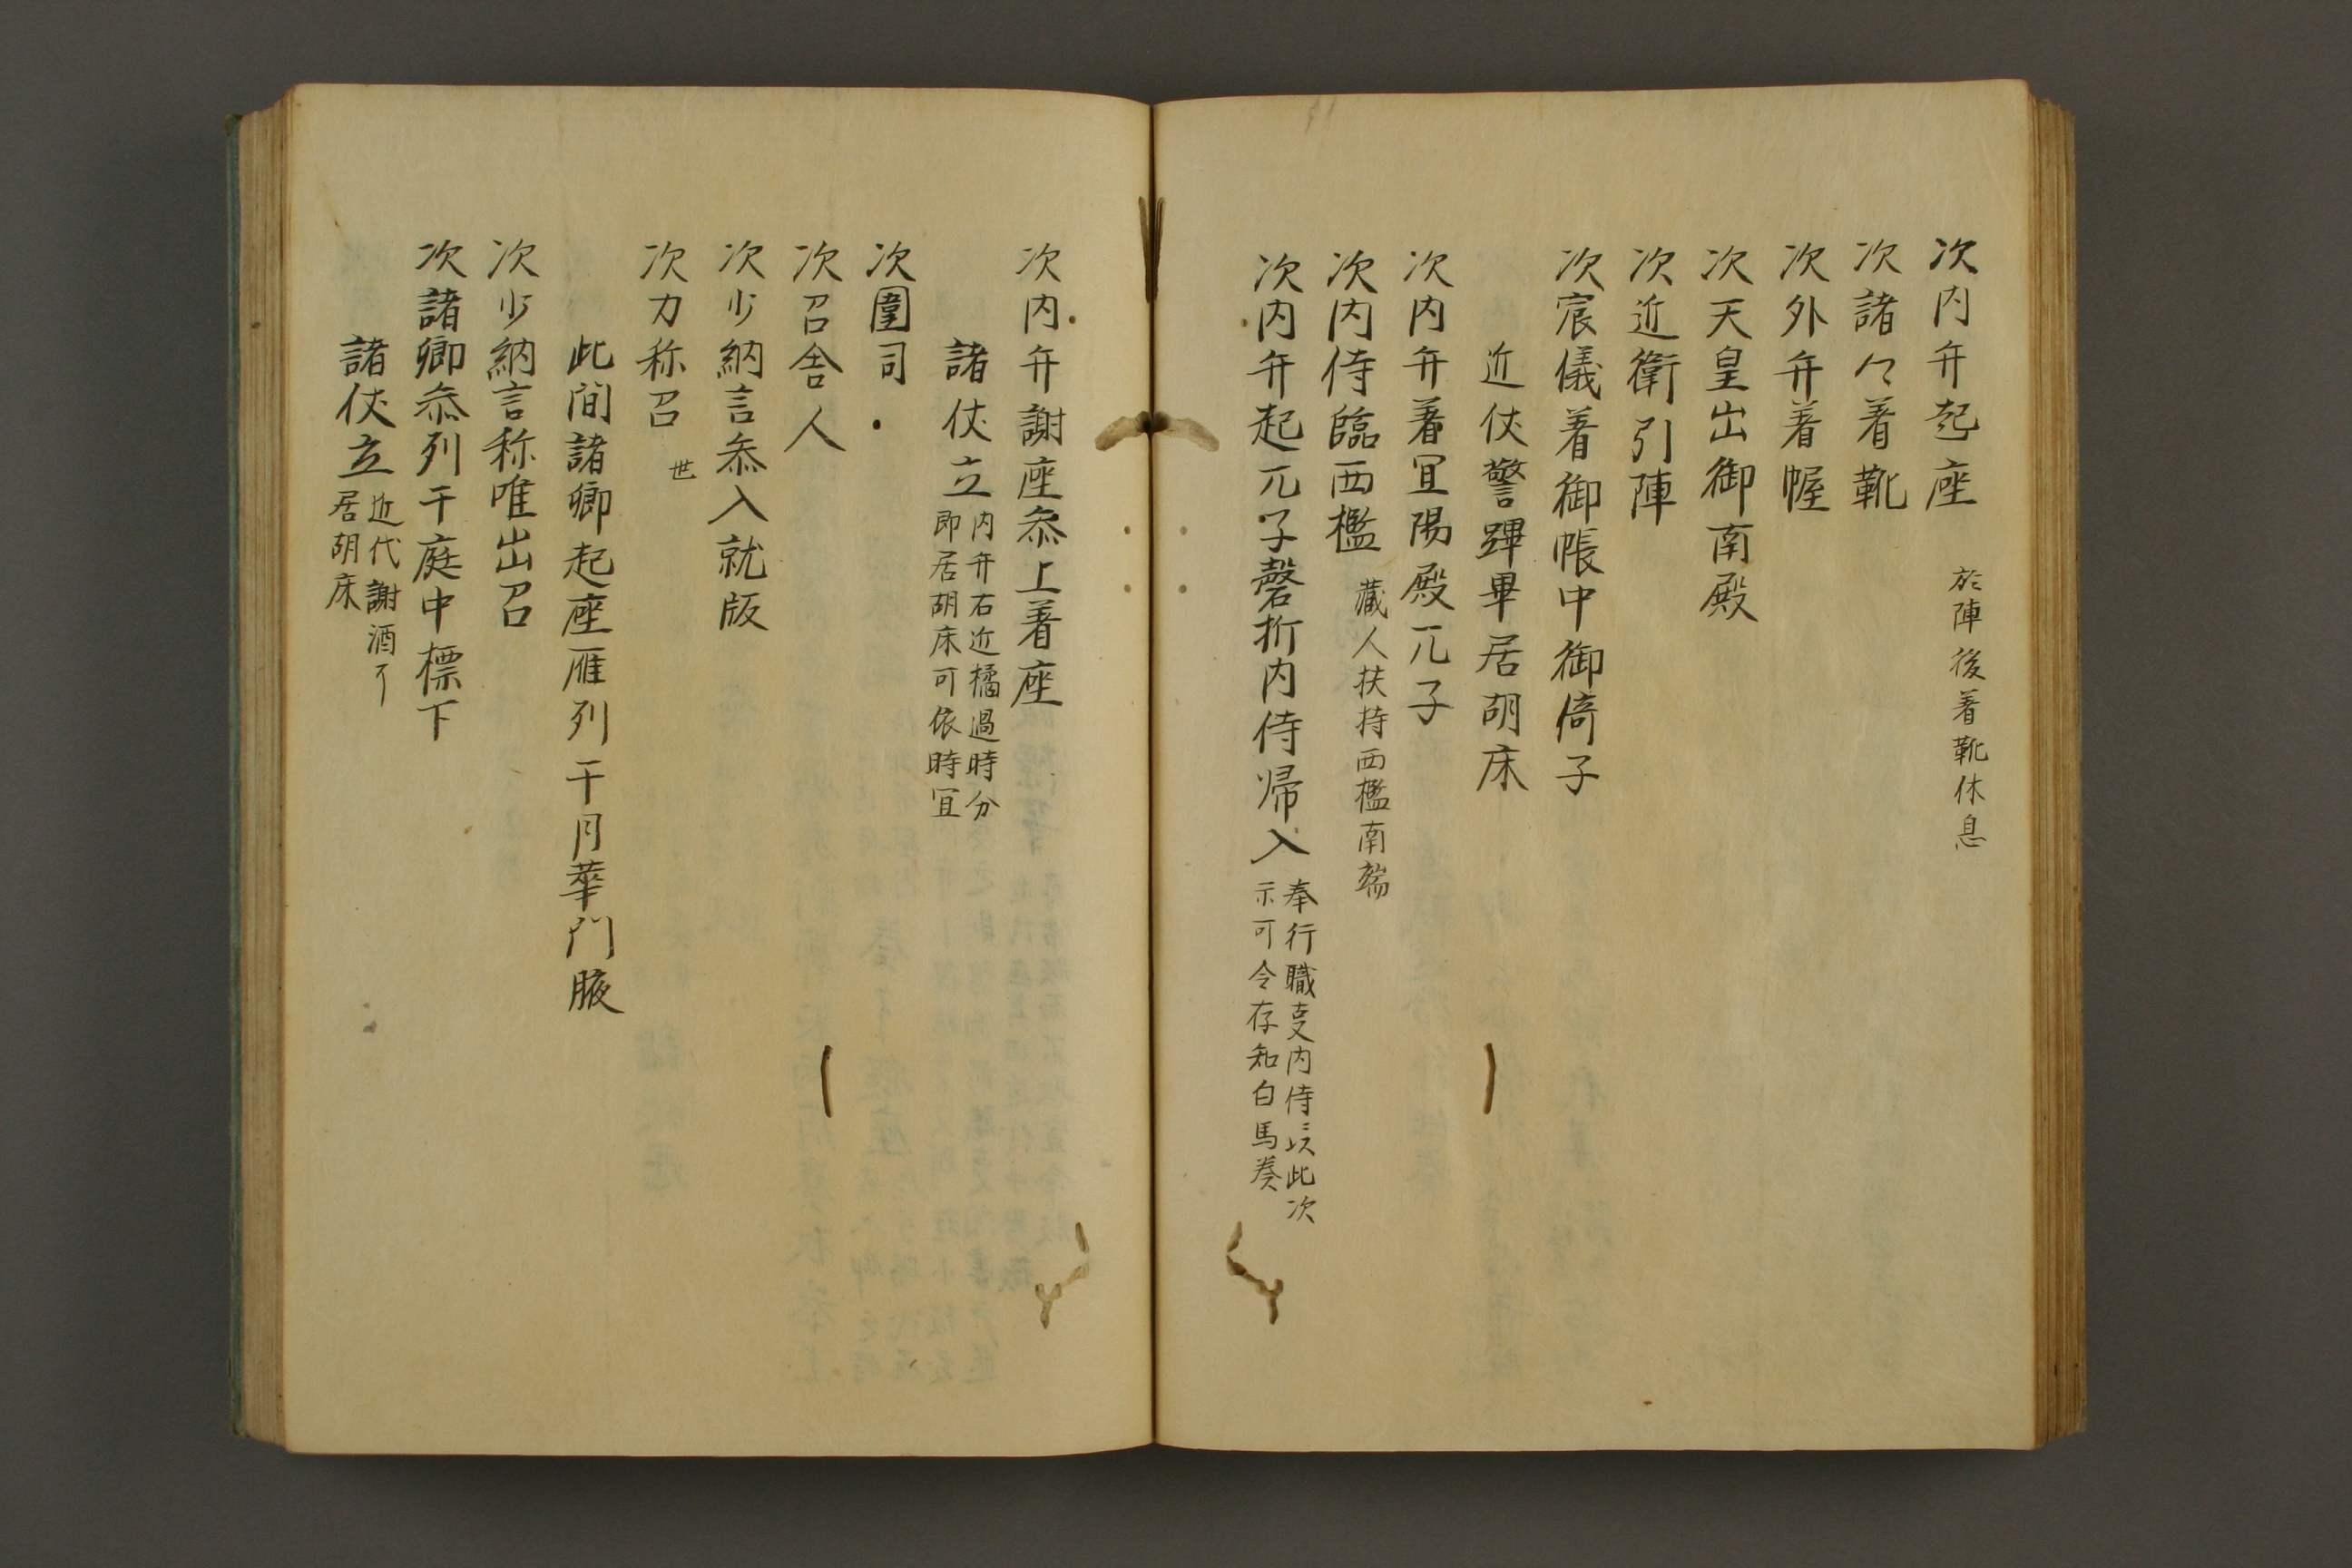 次内弁起座 於陣後着靴休息
次諸々着靴
次外弁着幄
次天皇出御南殿
次近衛引陣
次宸儀着御帳中御倚子
近仗警蹕畢居胡床
次内弁着冝陽殿兀子
次内侍臨西檻 蔵人扶持西檻南端
次内弁起兀子磬折内侍帰入 奉行職事内侍ニ以此次
示可令存知白馬奏
次内弁謝座叅上着座
諸仗立 内弁右近橘過時分
即居胡床可依時冝
次圍司
次召舎人
次少納言叅入就版
次力称召 世
此間諸卿起座雁列于月華門腋
次少納言称唯出召
次諸卿叅列于庭中標下
諸仗立 近代謝酒了
居胡床